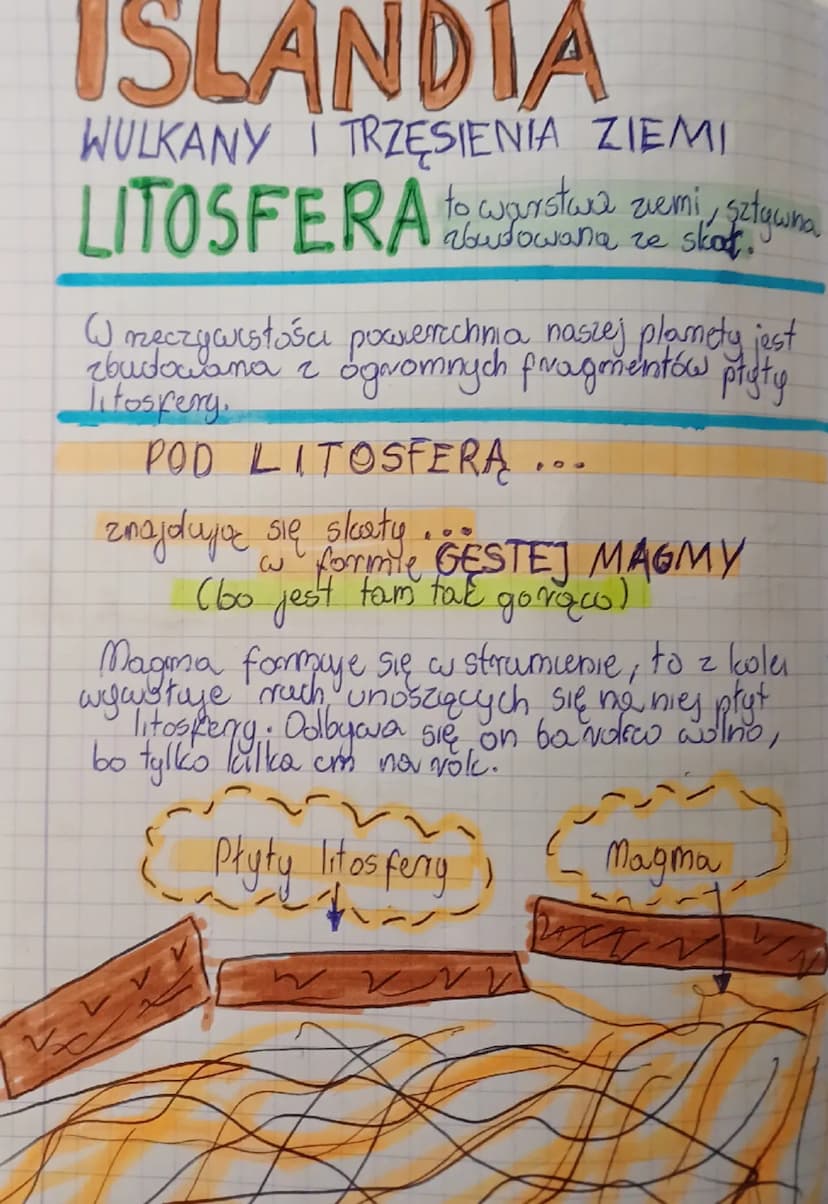 ISLANDIA
WULKANY I TRZĘSIENIA ZIEMI
LITOSFERA to warstwa ziemi, sztywna
zbudowana ze skał.
W rzeczywistości powierzchnia naszej planety jest
zbudowana z ogromnych fragmentów płyty
litosfery.
POD LITOSFERĄ ...
znajdują się skały ...
w formie GĘSTEJ MAGMY
(bo jest tam tak gorąco)
Magma formuje się w strumienie, to z kolei
wywołuje ruch unoszących się na niej płyt
litosfery. Odbywa się on bardzo wolno,
bo tylko kilka cm na rok.
Płyty litosfery
Magma